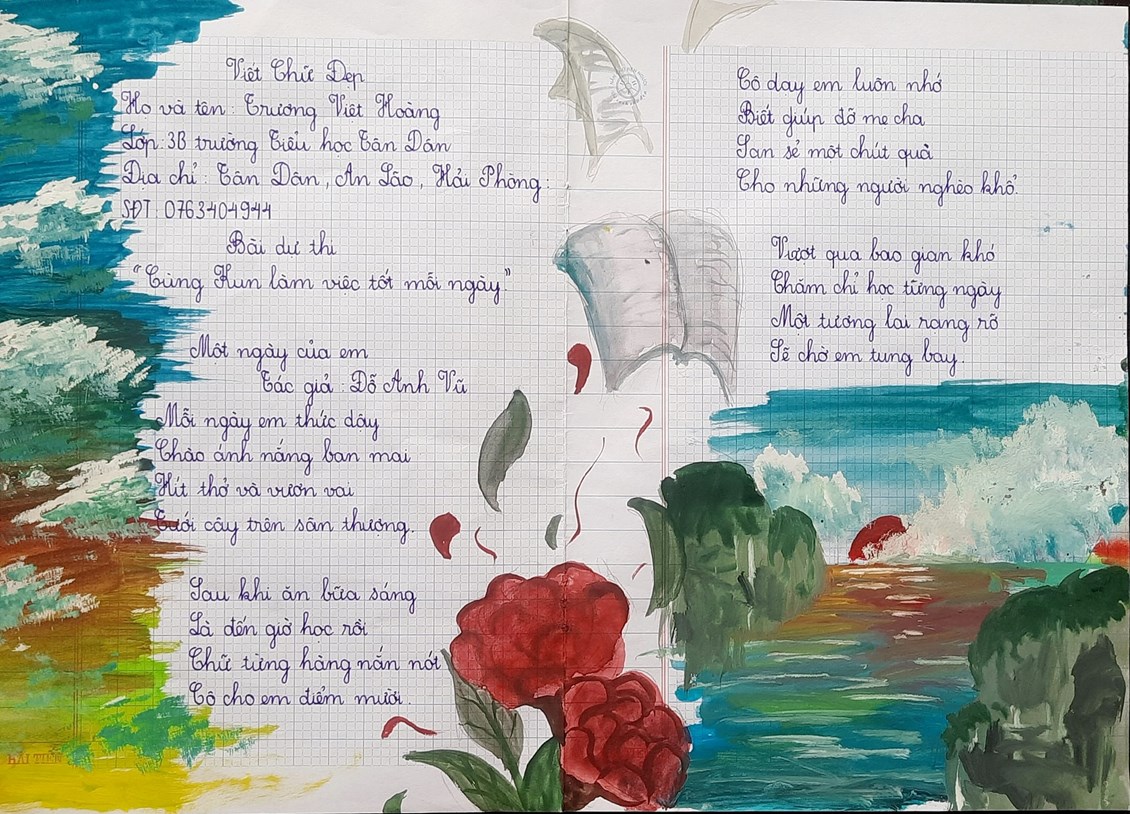 Viết Chữ Đẹp
Họ và tên: Trương Việt Hoàng
Lớp: 3B trường Tiểu học Tân Dân
Địa chỉ: Tân Dân, An Lão, Hải Phòng:
SĐT: 0763404944
Bài dự thi
"Cùng Kun làm việc tốt mỗi ngày"
Một ngày của em
Tác giả: Đỗ Anh Vũ
Mỗi ngày em thức dậy
Chào ánh nắng ban mai
Hít thở và vươn vai
Tưới cây trên sân thượng.
Sau khi ăn bữa sáng
Là đến giờ học rồi
Chữ từng hàng nắn nót
Cô cho em điểm mười.
HẢI TIẾN
Cô dạy em luôn nhớ
Biết giúp đỡ mẹ cha
San sẻ một chút quà
Cho những người nghèo khổ.
Vượt qua bao gian khó
Chăm chỉ học từng ngày
Một tương lai rạng rỡ
Sẽ chờ em tung bay.